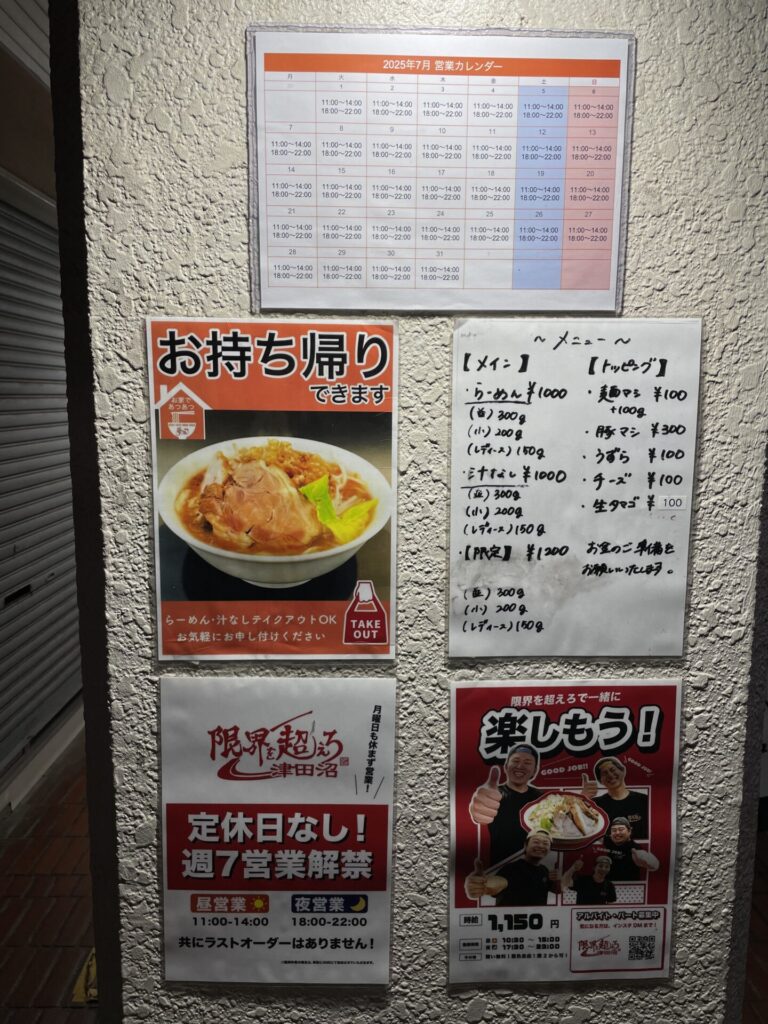 2025年7月 営業カレンダー
月 火 水 木 金 土 日
1 2 3 4 5 6
11:00〜14:00 11:00〜14:00 11:00〜14:00 11:00〜14:00 11:00〜14:00 11:00〜14:00
18:00〜22:00 18:00〜22:00 18:00〜22:00 18:00〜22:00 18:00〜22:00 18:00〜22:00
7 8 9 10 11 12 13
11:00〜14:00 11:00〜14:00 11:00〜14:00 11:00〜14:00 11:00〜14:00 11:00〜14:00 11:00〜14:00
18:00〜22:00 18:00〜22:00 18:00〜22:00 18:00〜22:00 18:00〜22:00 18:00〜22:00 18:00〜22:00
14 15 16 17 18 19 20
11:00〜14:00 11:00〜14:00 11:00〜14:00 11:00〜14:00 11:00〜14:00 11:00〜14:00 11:00〜14:00
18:00〜22:00 18:00〜22:00 18:00〜22:00 18:00〜22:00 18:00〜22:00 18:00〜22:00 18:00〜22:00
21 22 23 24 25 26 27
11:00〜14:00 11:00〜14:00 11:00〜14:00 11:00〜14:00 11:00〜14:00 11:00〜14:00 11:00〜14:00
18:00〜22:00 18:00〜22:00 18:00〜22:00 18:00〜22:00 18:00〜22:00 18:00〜22:00 18:00〜22:00
28 29 30 31
11:00〜14:00 11:00〜14:00 11:00〜14:00 11:00〜14:00
18:00〜22:00 18:00〜22:00 18:00〜22:00 18:00〜22:00
お持ち帰り
できます
お家で
あつあつ
らーめん・汁なしテイクアウトOK
お気軽にお申し付けください
TAKE
OUT
〜メニュー〜
【メイン】
・らーめん ¥1000
(並) 300g
(小) 200g
(レディース) 150g
・汁なし ¥1000
(並) 300g
(小) 200g
(レディース) 150g
・【限定】 ¥1200
(並) 300g
(小) 200g
(レディース) 150g
【トッピング】
・麺マシ ¥100
+100g
・豚マシ ¥300
・うずら ¥100
・チーズ ¥100
・生タマゴ ¥100
お金のご準備を
お願いいたします。
月曜日も休まず営業!
限界を超えろ
津田沼
定休日なし!
週7営業解禁
昼営業 夜営業
11:00-14:00 18:00-22:00
共にラストオーダーはありません!
限界を超えろで一緒に
楽しもう!
GOOD JOB!!
GOOD JOB!
時給 1,150円
10:30 〜 15:00
17:30 〜 23:00
アルバイト・パート募集中
気になる方は、インスタDMまで!
限界を超えろ